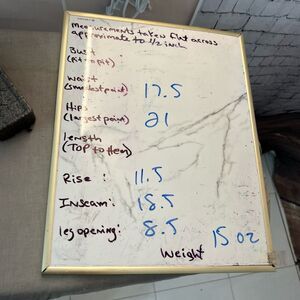 measurements taken flat across
approximate to 1/2 inch
Bust
(Pit to Pit)
Waist
(smallest point) 17.5
Hips
(largest point) 21
Length
(TOP to Hem)
Rise: 11.5
Inseam: 18.5
leg opening: 8.5
15 oz
Weight